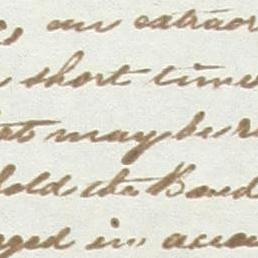 an extraor
short time
at may be r
hold the Bond
ged in accou